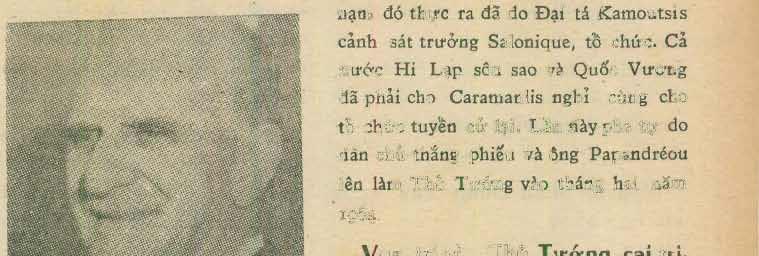 nạn đó thực ra đã do Đại tá Kamoutsis
cảnh sát trưởng Salonique, tổ chức. Cả
nước Hi Lạp sôn sao và Quốc Vương
đã phải cho Caramanlis nghỉ cùng cho
tổ chức tuyển cử lại. Lần này phe tự do
dân chủ thắng phiếu và ông Papandréou
lên làm Thủ Tướng vào tháng hai năm
Thủ Tướng cai trị,